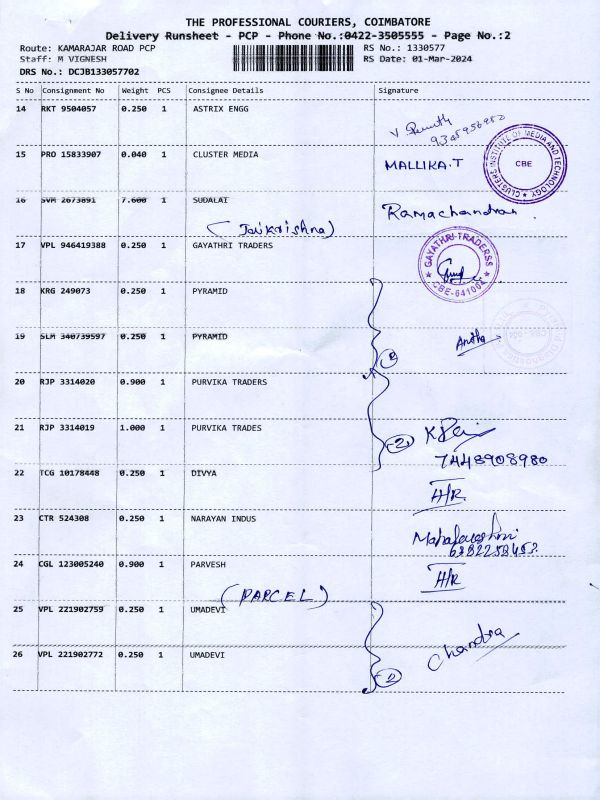 THE PROFESSIONAL COURIERS, COIMBATORE
Delivery Runsheet - PCP - Phone No.:0422-3505555 - Page No.:2
Route: KAMARAJAR ROAD PCP RS No.: 1330577
Staff: M VIGNESH RS Date: 01-Mar-2024
DRS No.: DCJB133057702
S No Consignment No Weight PCS Consignee Details Signature
14 RKT 9504057 0.250 1 ASTRIX ENGG
15 PRO 15833907 0.040 1 CLUSTER MEDIA MALLIKA.T
CLUSTERS INSTITUTE OF MEDIA AND TECHNOLOGY
CBE
16 SVM 2673891 7.600 1 SUDALAI Ramachandran.
(Jaikrishna)
17 VPL 946419388 0.250 1 GAYATHRI TRADERS
GAYATHRI TRADERSS
CBE-641004
18 KRG 249073 0.250 1 PYRAMID
19 SLM 340739597 0.250 1 PYRAMID
20 RJP 3314020 0.900 1 PURVIKA TRADERS
21 RJP 3314019 1.000 1 PURVIKA TRADES
2
7448908980
22 TCG 10178448 0.250 1 DIVYA H/R
23 CTR 524308 0.250 1 NARAYAN INDUS
24 CGL 123005240 0.900 1 PARVESH H/R
(PARCEL)
25 VPL 221902759 0.250 1 UMADEVI
Chandra
26 VPL 221902772 0.250 1 UMADEVI
2